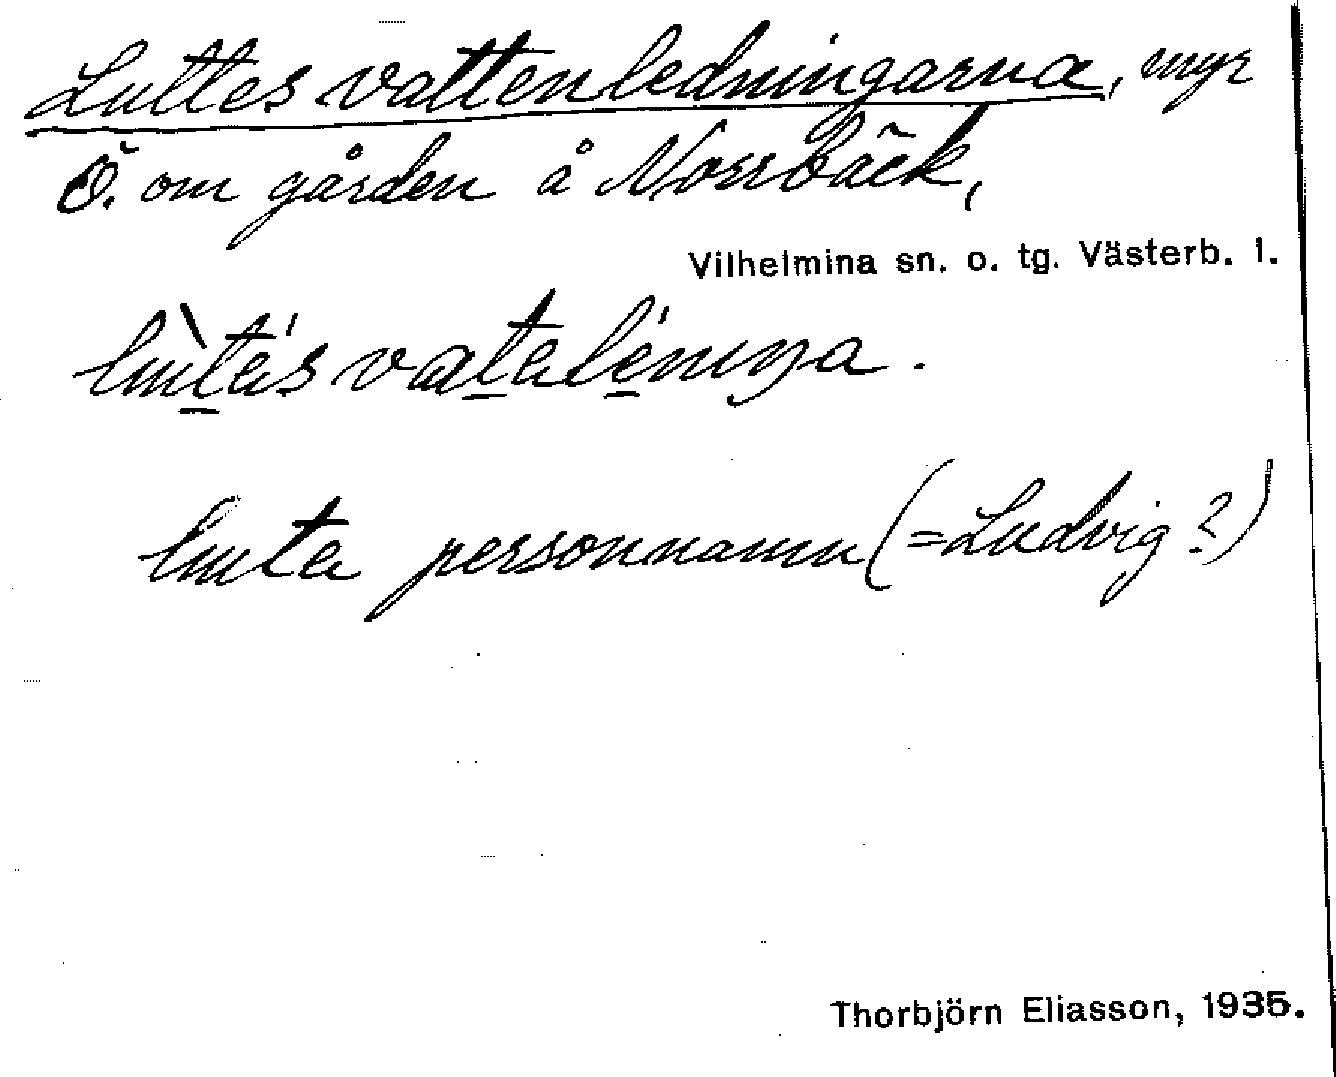 Luttes vattenledningarna, myr
Ö. om gården å Norrbäck,
Vilhelmina sn. o. tg. Västerb. l.
personnamn (=Ludvig?)
Thorbjörn Eliasson, 1935.